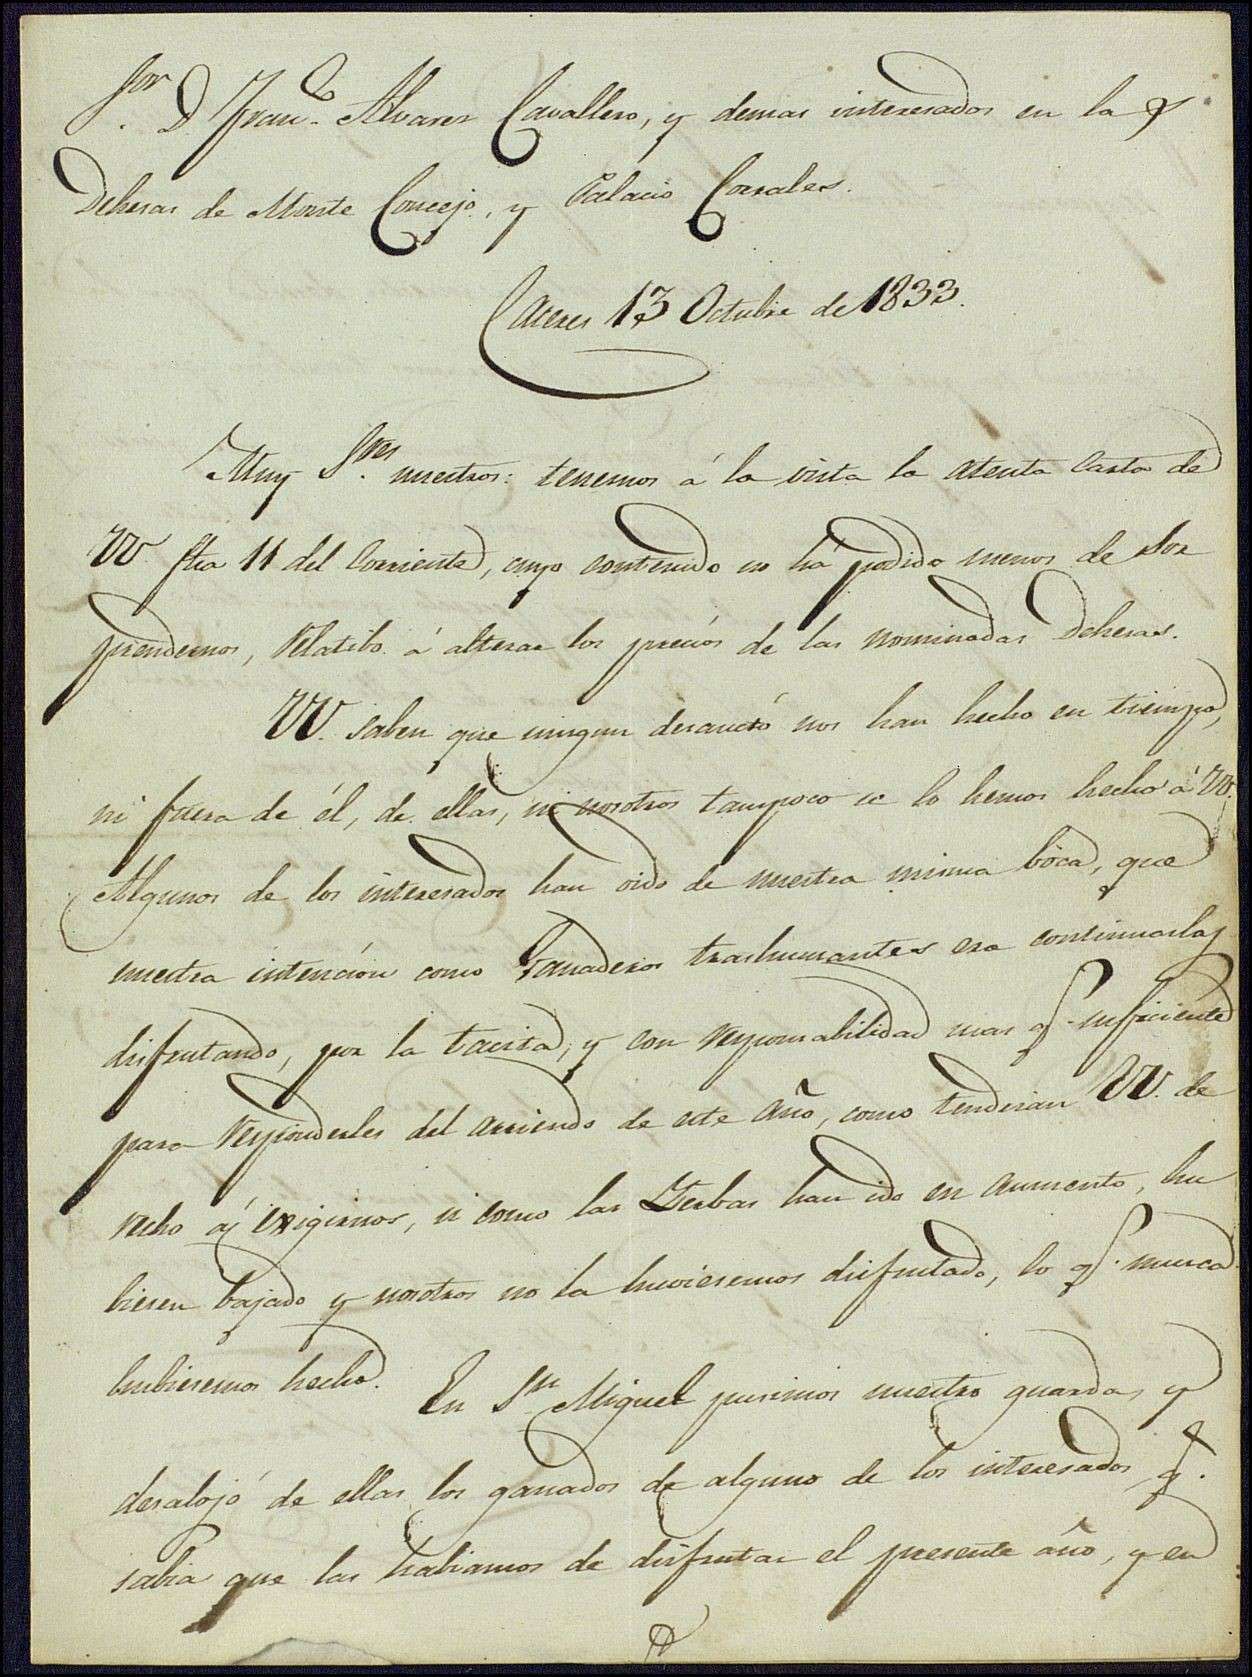 Sor. D. Franco. Alvarez Cavallero, y demas interesados en las
Dehesas de Monte Concejo, y Palacio Corrales.
Caceres 13 Octubre de 1833.
Muy Sres. nuestros: tenemos á la vista la atenta carta de
VV. fha 11 del corriente, cuyo contenido no há podido menos de sor
prendernos, relatibo á alterar los precios de las nominadas Dehesas.
VV. saben que ningun desaucio nos han hecho en tiempo,
ni fuera de él, de ellas, ni nosotros tampoco se lo hemos hecho á VV.
Algunos de los interesados han oido de nuestra misma bóca, que
nuestra intención como Ganaderos trashumantes era continuarlas
disfrutando, por la tacita, y con responsabilidad mas q. suficiente
para responderles del arriendo de este año, como tendrian VV. de
recho á exigirnos, si como las Yerbas han ido en aumento, hu
biesen bajado y nosotros no la huviesemos disfrutado, lo q. nunca
hubiesemos hecho. En Sn. Miguel pusimos nuestro guarda, y
desalojó de ellas los ganados de alguno de los interesados q.
sabia que las habiamos de disfrutar el presente año, y en